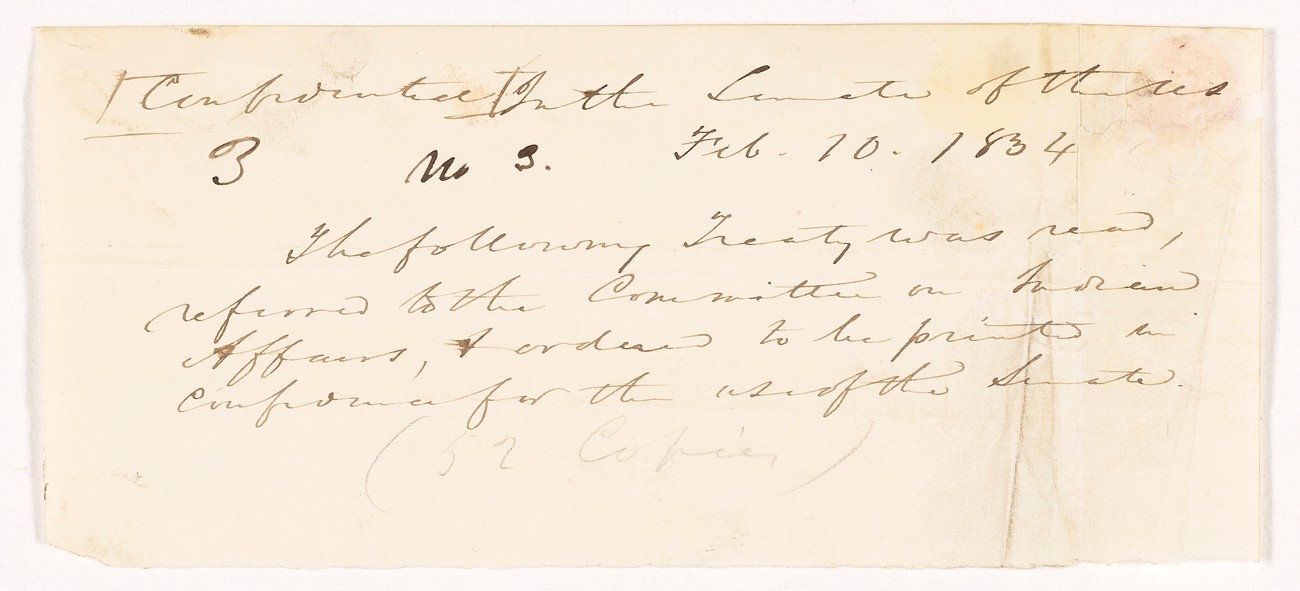 [Confidential] In the Senate of the US
3 No 3. Feb. 10. 1834
The following Treaty was read,
referred to the Committee on Indian
Affairs, & ordered to be printed in
confidence for the use of the Senate.
(52 Copies)